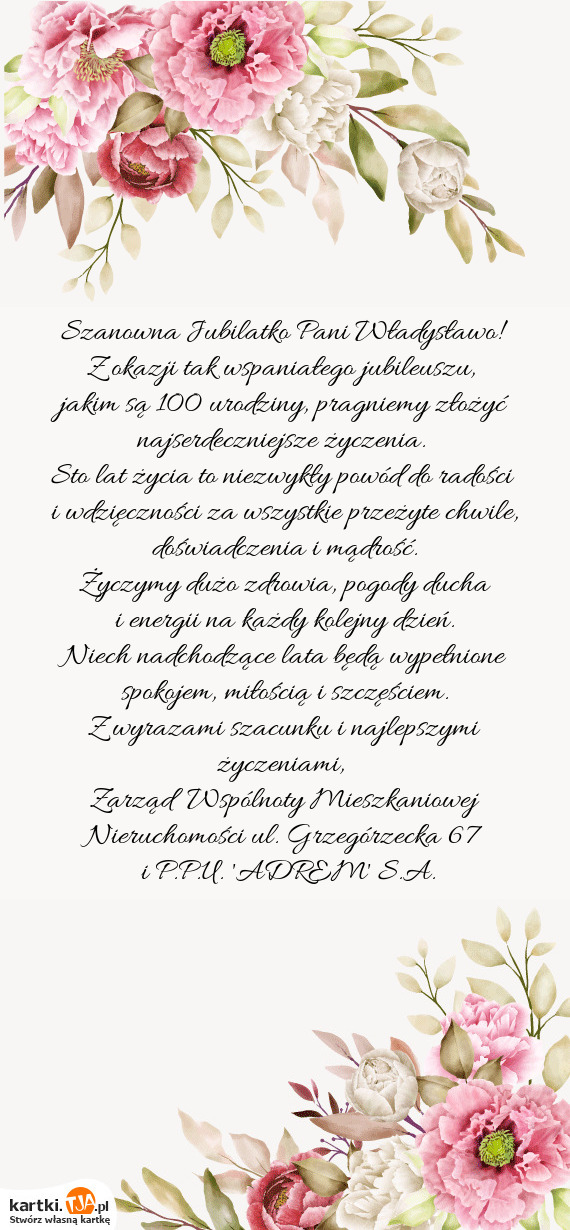 Szanowna Jubilatko Pani Władysławo!
Z okazji tak wspaniałego jubileuszu,
jakim są 100 urodziny, pragniemy złożyć
najserdeczniejsze życzenia.
Sto lat życia to niezwykły powód do radości
i wdzięczności za wszystkie przeżyte chwile,
doświadczenia i mądrość.
Życzymy dużo zdrowia, pogody ducha
i energii na każdy kolejny dzień.
Niech nadchodzące lata będą wypełnione
spokojem, miłością i szczęściem.
Z wyrazami szacunku i najlepszymi
życzeniami,
Zarząd Wspólnoty Mieszkaniowej
Nieruchomości ul. Grzegórzecka 67
i P.P.U. 'ADREM' S.A.
kartki.TJA.pl
Stwórz własną kartkę